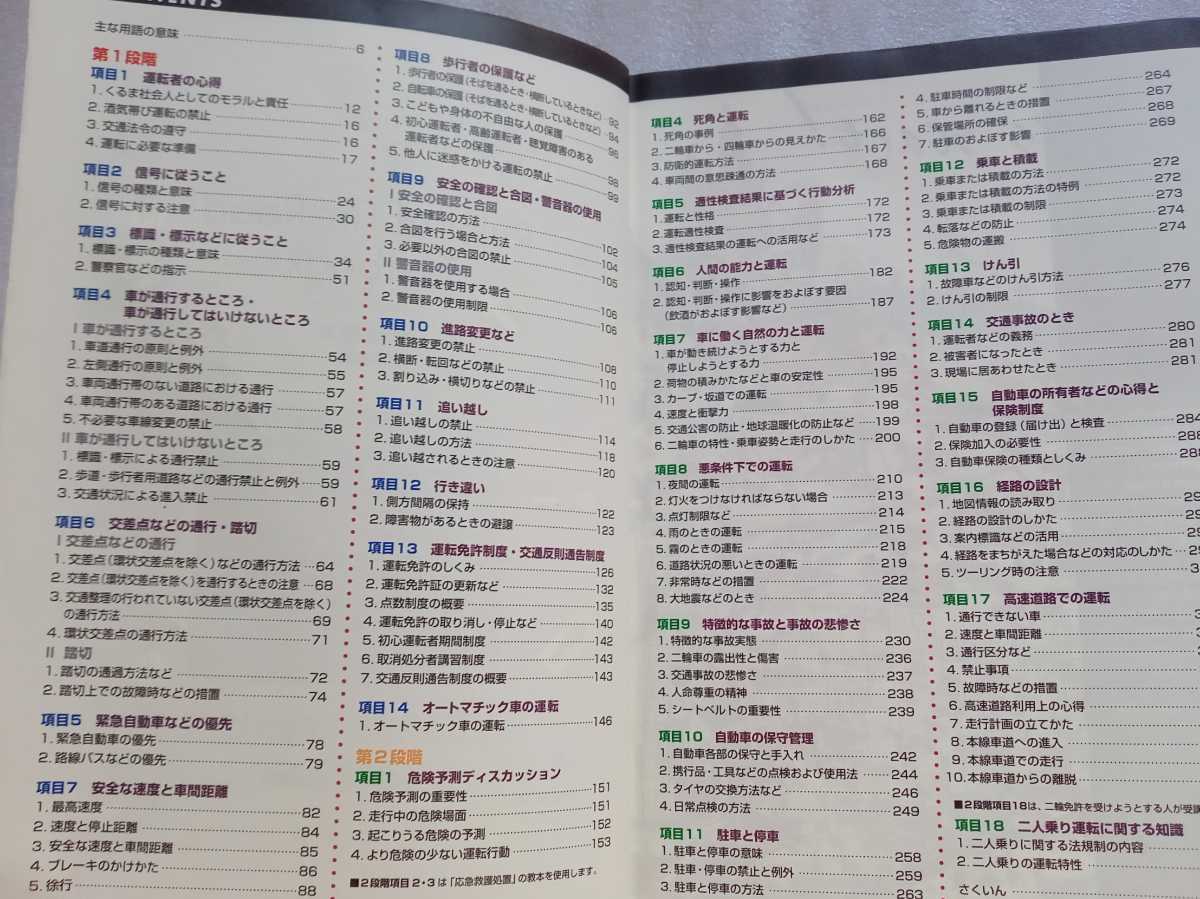 主な用語の意味 6
第1段階
項目1 運転者の心得
1. くるま社会人としてのモラルと責任 12
2. 酒気帯び運転の禁止 16
3. 交通法令の遵守 16
4. 運転に必要な準備 17
項目2 信号に従うこと
1. 信号の種類と意味 24
2. 信号に対する注意 30
項目3 標識・標示などに従うこと
1. 標識・標示の種類と意味 34
2. 警察官などの指示 51
項目4 車が通行するところ・
車が通行してはいけないところ
I 車が通行するところ
1. 車道通行の原則と例外 54
2. 左側通行の原則と例外 55
3. 車両通行帯のない道路における通行 57
4. 車両通行帯のある道路における通行 57
5. 不必要な車線変更の禁止 58
II 車が通行してはいけないところ
1. 標識・標示による通行禁止 59
2. 歩道・歩行者用道路などの通行禁止と例外 59
3. 交通状況による進入禁止 61
項目6 交差点などの通行・踏切
I 交差点などの通行
1. 交差点(環状交差点を除く)などの通行方法 64
2. 交差点(環状交差点を除く)を通行するときの注意 68
3. 交通整理の行われていない交差点(環状交差点を除く)
の通行方法 69
4. 環状交差点の通行方法 71
II 踏切
1. 踏切の通過方法など 72
2. 踏切上での故障時などの措置 74
項目5 緊急自動車などの優先
1. 緊急自動車の優先 78
2. 路線バスなどの優先 79
項目7 安全な速度と車間距離
1. 最高速度 82
2. 速度と停止距離 84
3. 安全な速度と車間距離 85
4. ブレーキのかけかた 86
5. 徐行 88
項目8 歩行者の保護など
1. 歩行者の保護(そばを通るとき・横断しているときなど) 92
2. 自転車の保護(そばを通るとき・横断しているときなど) 94
3. こどもや身体の不自由な人の保護 96
4. 初心運転者・高齢運転者・聴覚障害のある
運転者などの保護 98
5. 他人に迷惑をかける運転の禁止 99
項目9 安全の確認と合図・警音器の使用
I 安全の確認と合図
1. 安全確認の方法 102
2. 合図を行う場合と方法 104
3. 必要以外の合図の禁止 105
II 警音器の使用
1. 警音器を使用する場合 106
2. 警音器の使用制限 106
項目10 進路変更など
1. 進路変更の禁止 108
2. 横断・転回などの禁止 110
3. 割り込み・横切りなどの禁止 111
項目11 追い越し
1. 追い越しの禁止 114
2. 追い越しの方法 118
3. 追い越されるときの注意 120
項目12 行き違い
1. 側方間隔の保持 122
2. 障害物があるときの避譲 123
項目13 運転免許制度・交通反則通告制度
1. 運転免許のしくみ 126
2. 運転免許証の更新など 132
3. 点数制度の概要 135
4. 運転免許の取り消し・停止など 140
5. 初心運転者期間制度 142
6. 取消処分者講習制度 143
7. 交通反則通告制度の概要 143
項目14 オートマチック車の運転
1. オートマチック車の運転 146
第2段階
項目1 危険予測ディスカッション
1. 危険予測の重要性 151
2. 走行中の危険場面 151
3. 起こりうる危険の予測 152
4. より危険の少ない運転行動 153
■2段階項目2・3は「応急救護処置」の教本を使用します。
項目4 死角と運転
1. 死角の事例 162
2. 二輪車から・四輪車からの見えかた 166
3. 防衛的運転方法 167
4. 車両間の意思疎通の方法 168
項目5 適性検査結果に基づく行動分析
1. 運転と性格 172
2. 運転適性検査 172
3. 適性検査結果の運転への活用など 173
項目6 人間の能力と運転
1. 認知・判断・操作 182
2. 認知・判断・操作に影響をおよぼす要因
(飲酒がおよぼす影響など) 187
項目7 車に働く自然の力と運転
1. 車が動き続けようとする力と
停止しようとする力 192
2. 荷物の積みかたなどと車の安定性 195
3. カーブ・坂道での運転 195
4. 速度と衝撃力 198
5. 交通公害の防止・地球温暖化の防止など 199
6. 二輪車の特性・乗車姿勢と走行のしかた 200
項目8 悪条件下での運転
1. 夜間の運転 210
2. 灯火をつけなければならない場合 213
3. 点灯制限など 214
4. 雨のときの運転 215
5. 霧のときの運転 218
6. 道路状況の悪いときの運転 219
7. 非常時などの措置 222
8. 大地震などのとき 224
項目9 特徴的な事故と事故の悲惨さ
1. 特徴的な事故実態 230
2. 二輪車の露出性と傷害 236
3. 交通事故の悲惨さ 237
4. 人命尊重の精神 238
5. シートベルトの重要性 239
項目10 自動車の保守管理
1. 自動車各部の保守と手入れ 242
2. 携行品・工具などの点検および使用法 244
3. タイヤの交換方法など 246
4. 日常点検の方法 249
項目11 駐車と停車
1. 駐車と停車の意味 258
2. 駐車・停車の禁止と例外 259
3. 駐車と停車の方法 263
4. 駐車時間の制限など 264
5. 車から離れるときの措置 267
6. 保管場所の確保 268
7. 駐車のおよぼす影響 269
項目12 乗車と積載
1. 乗車または積載の方法 272
2. 乗車または積載の方法の特例 272
3. 乗車または積載の制限 273
4. 転落などの防止 274
5. 危険物の運搬 274
項目13 けん引
1. 故障車などのけん引方法 276
2. けん引の制限 277
項目14 交通事故のとき
1. 運転者などの義務 280
2. 被害者になったとき 281
3. 現場に居あわせたとき 281
項目15 自動車の所有者などの心得と
保険制度
1. 自動車の登録(届け出)と検査 284
2. 保険加入の必要性 288
3. 自動車保険の種類としくみ 288
項目16 経路の設計
1. 地図情報の読み取り
2. 経路の設計のしかた
3. 案内標識などの活用
4. 経路をまちがえた場合などの対応のしかた
5. ツーリング時の注意
項目17 高速道路での運転
1. 通行できない車
2. 速度と車間距離
3. 通行区分など
4. 禁止事項
5. 故障時などの措置
6. 高速道路利用上の心得
7. 走行計画の立てかた
8. 本線車道への進入
9. 本線車道での走行
10. 本線車道からの離脱
■2段階項目18は、二輪免許を受けようとする人が受講
項目18 二人乗り運転に関する知識
1. 二人乗りに関する法規制の内容
2. 二人乗りの運転特性
さくいん